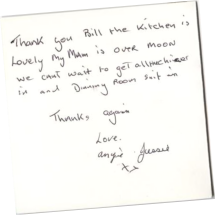 Thank you Bill the Kitchen is
Lovely My Mum is over moon
we cant wait to get all
in and Room Suit in
Thanks again
Love.
Angie